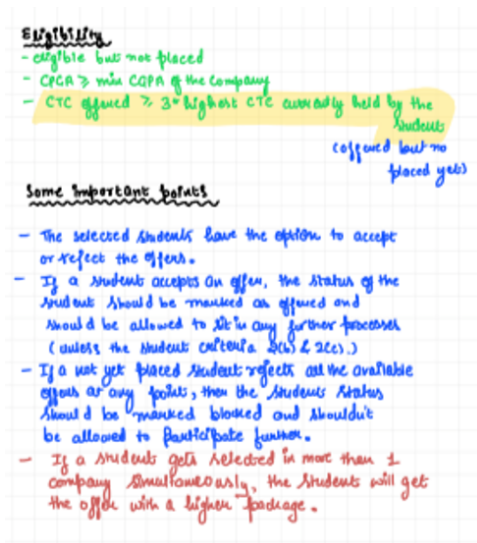 Eligibility
- eligible but not placed
- CPGA ≥ min CGPA of the company
- CTC offered ≥ 3* highest CTC currently held by the
student
(offered but no
placed yet)
Some important points
- The selected students have the option to accept
or reject the offers.
- If a student accepts an offer, the status of the
student should be marked as offered and
should be allowed to sit in any further processes
(unless the student criteria 2(b) & 2(c).)
- If a not yet placed student rejects all the available
offers at any point, then the students status
should be marked blocked and shouldn't
be allowed to participate further.
- If a student gets selected in more than 1
company simultaneously, the student will get
the offer with a higher package.